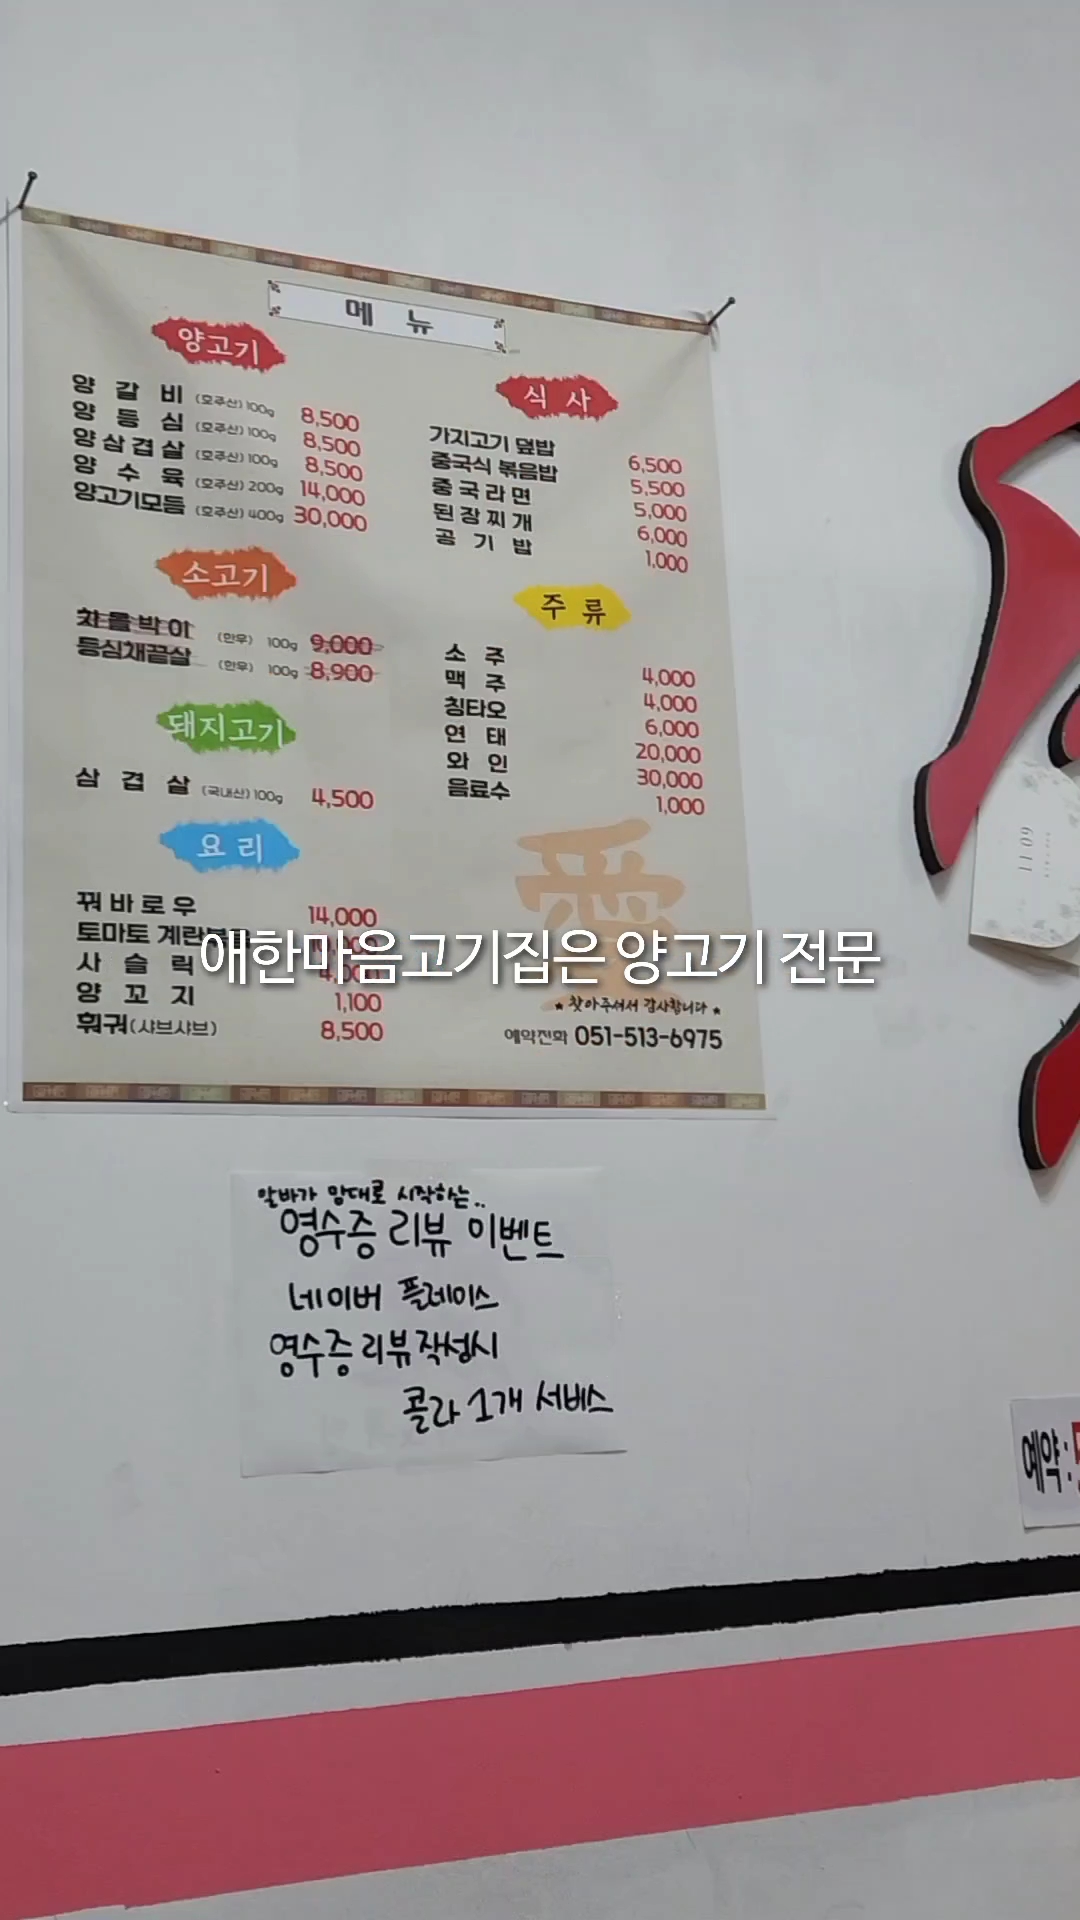 메 뉴
양고기
양 갈 비 (호주산) 100g 8,500
양 등 심 (호주산) 100g 8,500
양 삼 겹 살 (호주산) 100g 8,500
양 수 육 (호주산) 200g 14,000
양고기모듬 (호주산) 400g 30,000
소고기
차돌박이 (한우) 100g 9,000
등심채끝살 (한우) 100g 8,900
돼지고기
삼 겹 살 (국내산) 100g 4,500
요 리
꿔 바 로 우 14,000
토마토 계란
사 슬 릭 4,000
양 꼬 지 1,100
훠궈(샤브샤브) 8,500
식 사
가지고기 덮밥 6,500
중국식 볶음밥 5,500
중 국 라 면 5,000
된 장 찌 개 6,000
공 기 밥 1,000
주 류
소 주 4,000
맥 주 4,000
칭타오 6,000
연 태 20,000
와 인 30,000
음료수 1,000
愛
애한마음고기집은 양고기 전문
★ 찾아주셔서 감사합니다 ★
예약전화 051-513-6975
알바가 맘대로 시작하는..
영수증 리뷰 이벤트
네이버 플레이스
영수증 리뷰작성시
콜라 1개 서비스
11 09
예약: